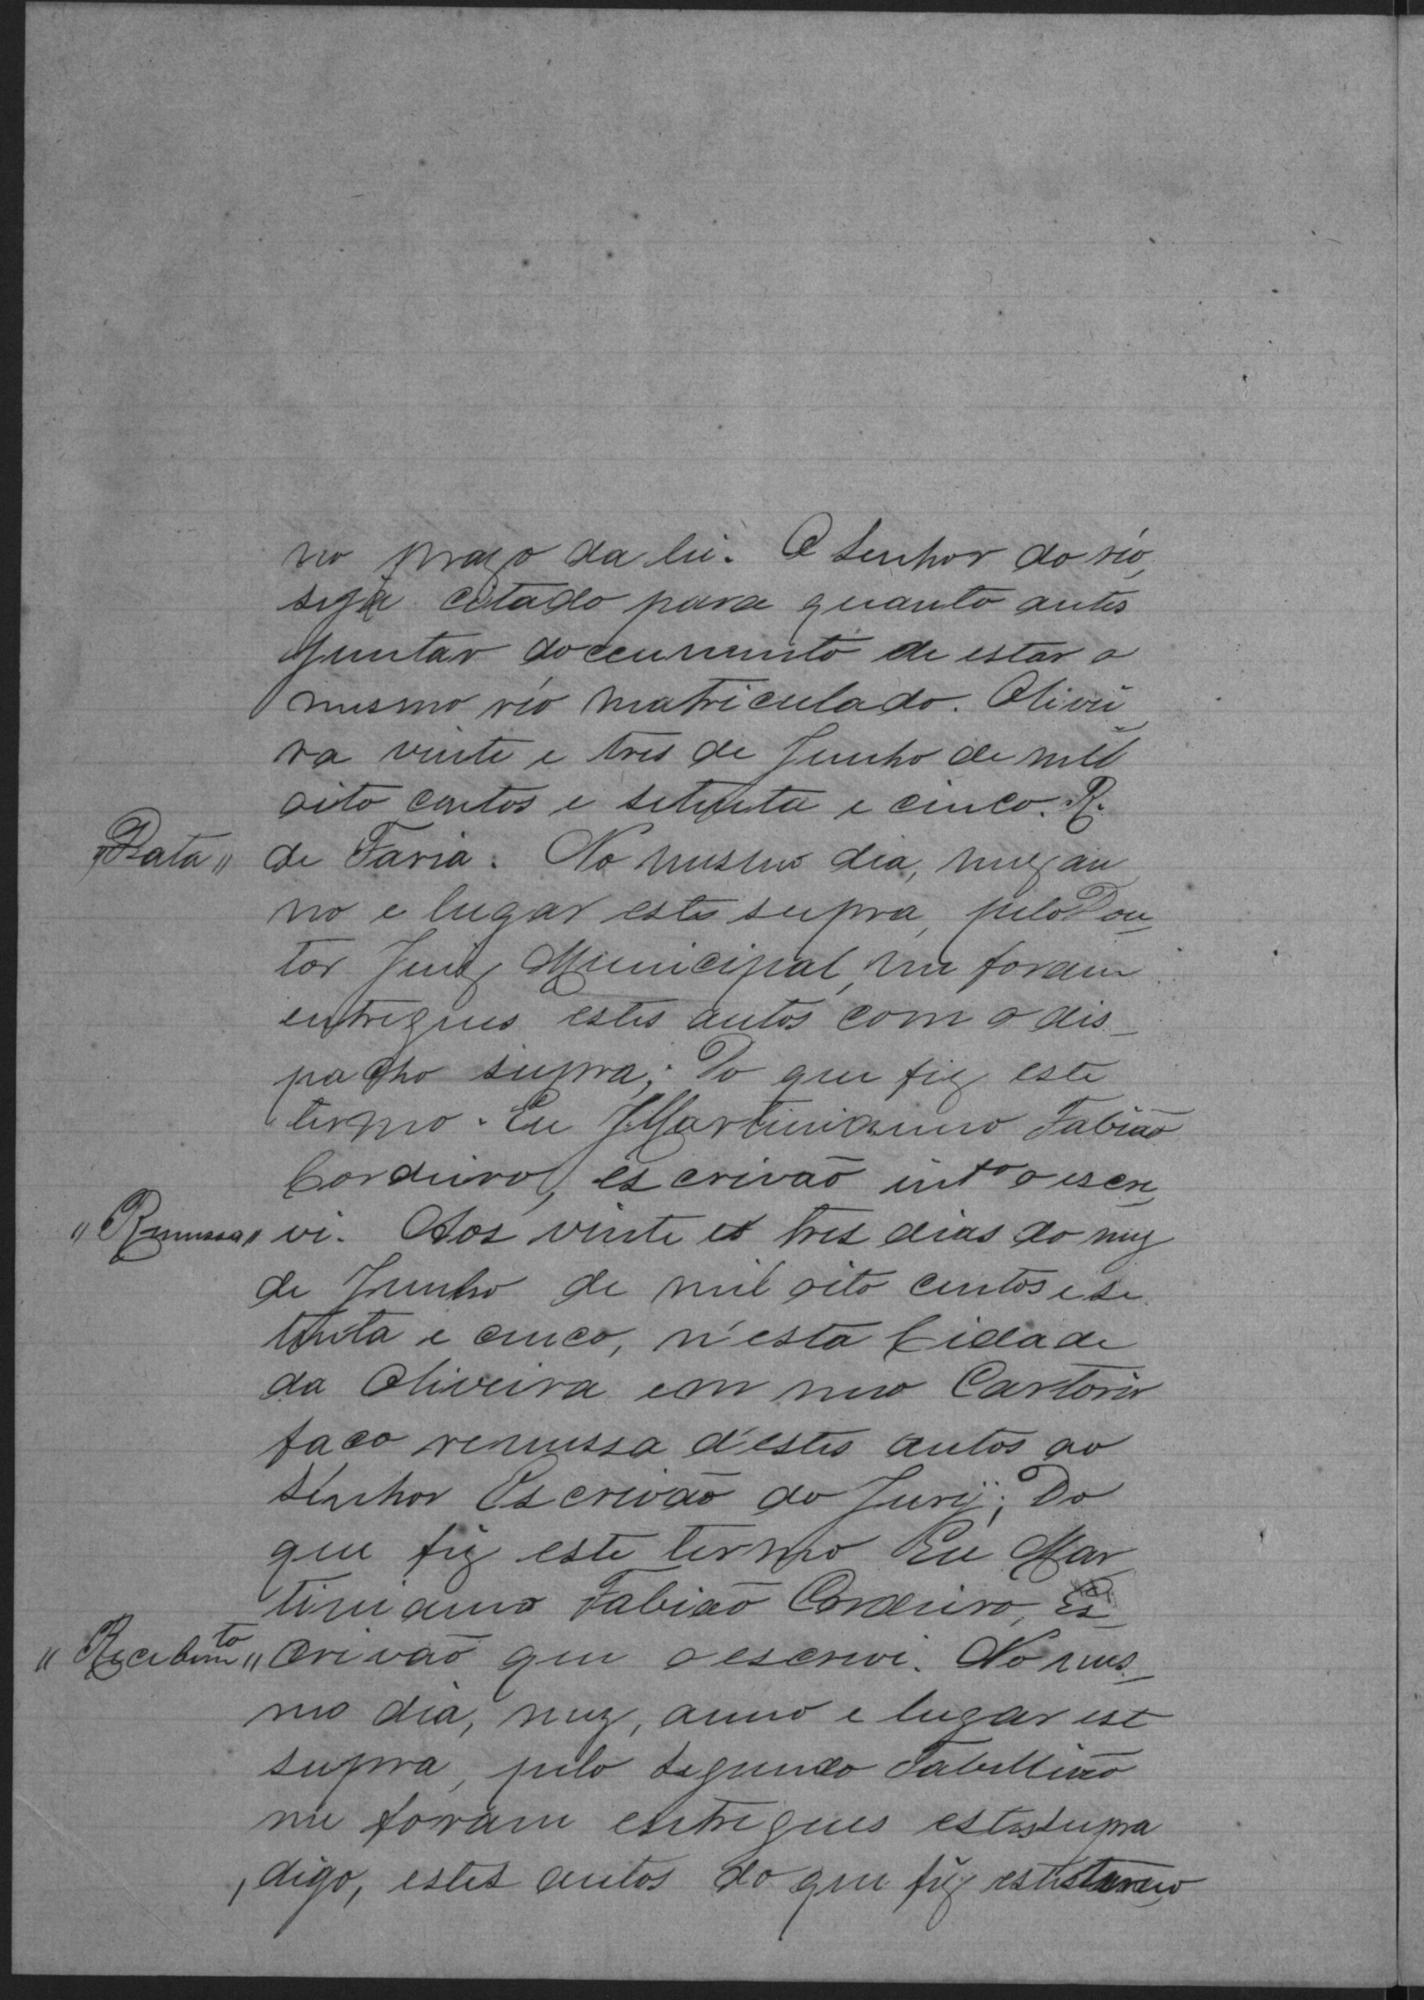 no prazo da lei. O Senhor do réo,
seja citado para quanto antes
juntar documento de estar o
mesmo réo matriculado. Olivei
ra vinte e tres de Junho de mil
oito centos e setenta e cinco. R.
"Data" de Faria. No mesmo dia, mez an
no e lugar este supra, pelo Dou_
tor Juiz Municipal, me foram
entregues estes autos com o dis_
pacho supra; Do que fiz este
termo. Eu Martinianno Fabião
Cordeiro, escrivão intº o escre_
"Remessa" vi. Aos vinte e tres dias do mez
de Junho de mil oito centos e se
tenta e cinco, n'esta Cidade
da Oliveira em meo Cartorio
faço remessa d'estes autos ao
Senhor Escrivão do Jury; Do
que fiz este termo Eu Mar
tiniano Fabião Cordeiro, Es_
"Recebimto" crivão que o escrevi. No mes_
mo dia, mez, anno e lugar est
supra, pelo segundo Tabellião
me foram entregues estes supra
, digo, estes autos do que fiz este termo